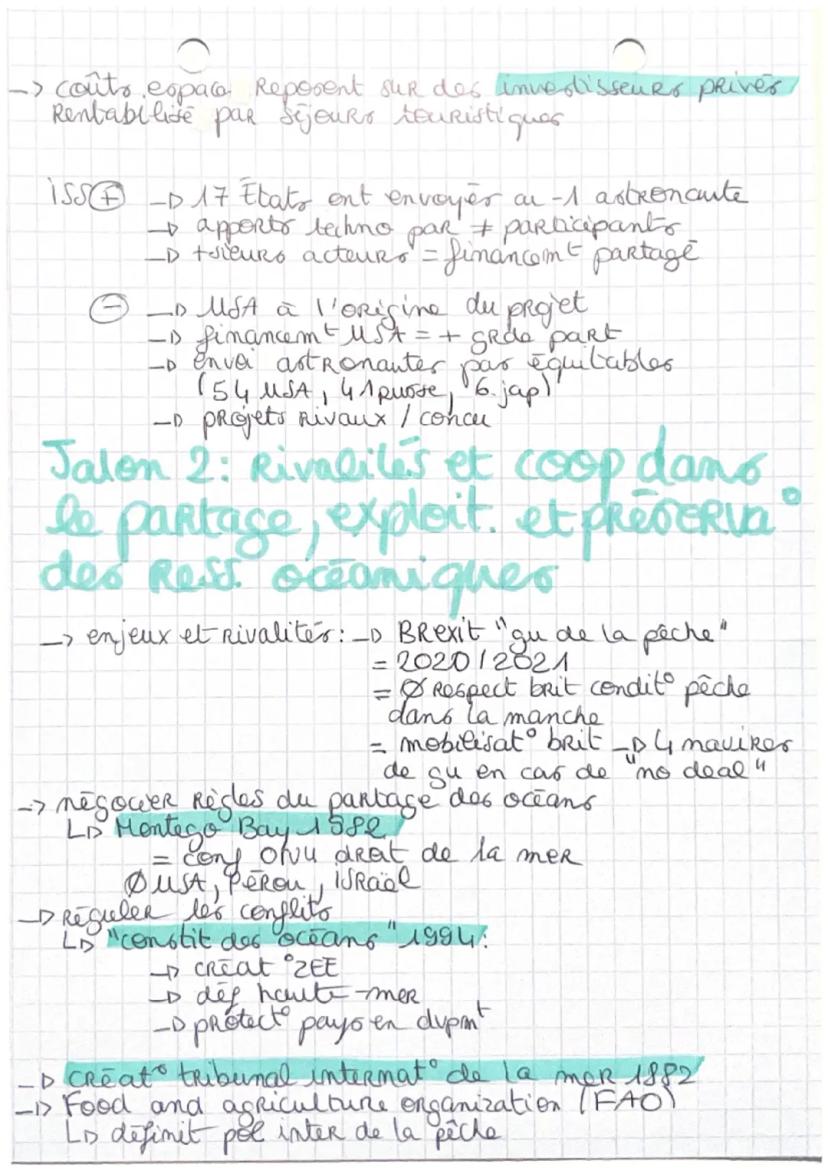 -> coûts espace Reposent sur des investisseurs privés
Rentabilité par séjours touristiques
ISS + -> 17 États ont envoyés au -1 astronaute
-> apports techno par ≠ participants
-> +sieurs acteurs = financemt partagé
- -> USA à l'origine du projet
-> financemt USA = + grde part
-> envoi astronautes pas équitables
(54 USA, 41 russe, 6 jap)
-> projets rivaux / concu
Jalon 2 : Rivalités et coop dans
le partage, exploit. et préserva°
des Ress. océaniques
-> enjeux et rivalités : -> Brexit "gu de la pêche"
= 2020/2021
= Ø respect brit condit° pêche
dans la manche
= mobilisat° brit -> 4 navires
de gu en cas de "no deal"
-> négocier règles du partage des océans
L> Montego Bay 1982
= conf ONU droit de la mer
Ø USA, Pérou, ISRaël
-> Réguler les conflits
L> "constit des océans" 1994 :
-> créat° ZEE
-> déf haute-mer
-> protect° pays en dvpmt
-> créat° tribunal internat° de la mer 1982
-> Food and agriculture organization (FAO)
L> définit pol inter de la pêche